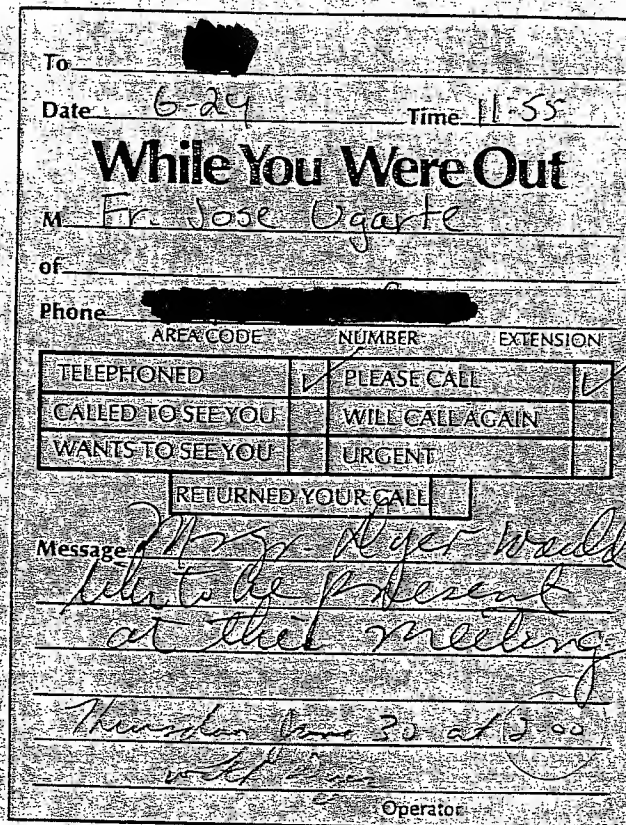 To
Date 6-24 Time 11-55
While You Were Out
M Fr. Jose Ugarte
of
Phone
AREA CODE NUMBER EXTENSION
TELEPHONED ✓ PLEASE CALL ✓
CALLED TO SEE YOU WILL CALL AGAIN
WANTS TO SEE YOU URGENT
RETURNED YOUR CALL
Message Msgr. Dyer would
like to be present
at this meeting
Thursday June 30 at 2:00
with
Operator